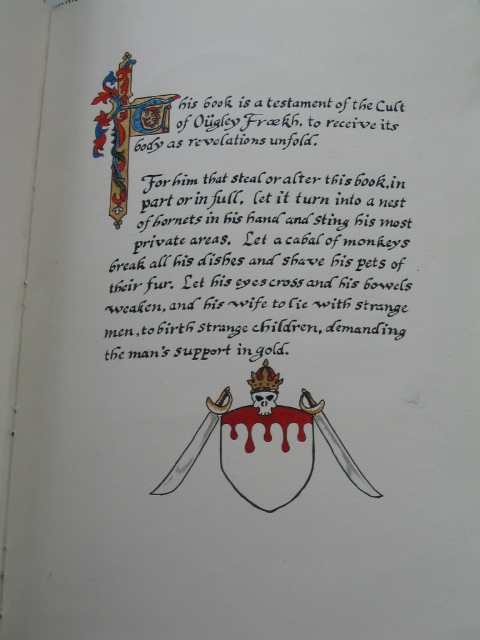 This book is a testament of the Cult
of Oügley Frækh, to receive its
body as revelations unfold.
For him that steal or alter this book, in
part or in full, let it turn into a nest
of hornets in his hand and sting his most
private areas. Let a cabal of monkeys
break all his dishes and shave his pets of
their fur. Let his eyes cross and his bowels
weaken, and his wife to lie with strange
men, to birth strange children, demanding
the man's support in gold.